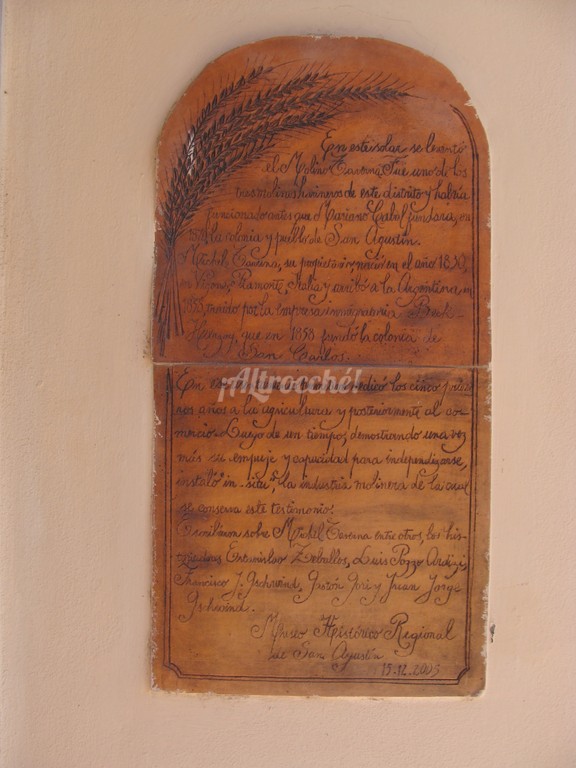 En este solar se levantó
el Molino Taverna. Fue uno de los
tres molinos harineros de este distrito y había
funcionado antes que Mariano Cabal fundara, en
la colonia y pueblo de San Agustín.
Michel Taverna, su propietario, nació en el año
en Piamonte, Italia y arribó a la Argentina en
1858, traído por la empresa inmigratoria Beck-
Herzog, que en 1858 fundó la colonia de
San Carlos.
¡ALirocché!
En dedicó los cinco prime-
ros años a la agricultura y posteriormente al co-
mercio. Luego de un tiempo, demostrando una vez
más su empuje y capacidad para independizarse,
instaló "in-situ", la industria molinera de la cual
se conserva este testimonio.
Escribieron sobre Michel Taverna entre otros, los his-
toriadores Estanislao Zeballos, Luis Pozzo Ardizzi,
Francisco J. Gschwind, Gastón Gori y Juan Jorge
Gshwind.
Museo Histórico Regional
de San Agustín
15.12.2005